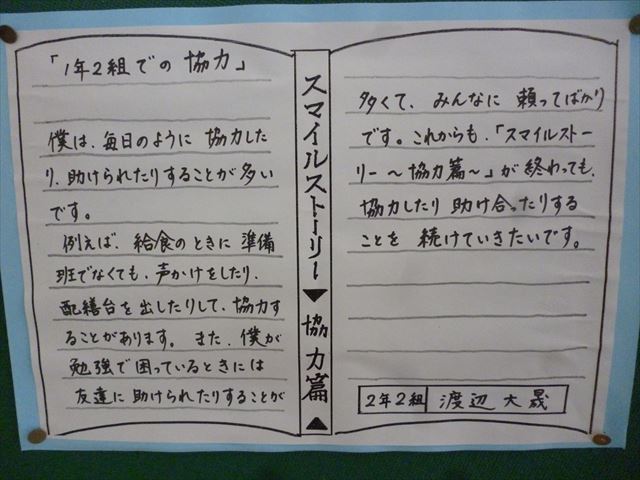 「1年2組での 協力」
僕は、毎日のように 協力した
り、助けられたりすることが多い
です。
例えば、給食のときに 準備
班でなくても、声かけをしたり、
配繕台を出したりして、協力す
ることがあります。また、僕が
勉強で困っているときには
友達に助けられたりすることが
スマイルストーリー▼協力篇▲
多くて、みんなに 頼ってばかり
です。これからも、「スマイルストー
リー〜協力篇〜」が終わっても、
協力したり助け合ったりする
ことを 続けていきたいです。
2年2組 渡辺大晟